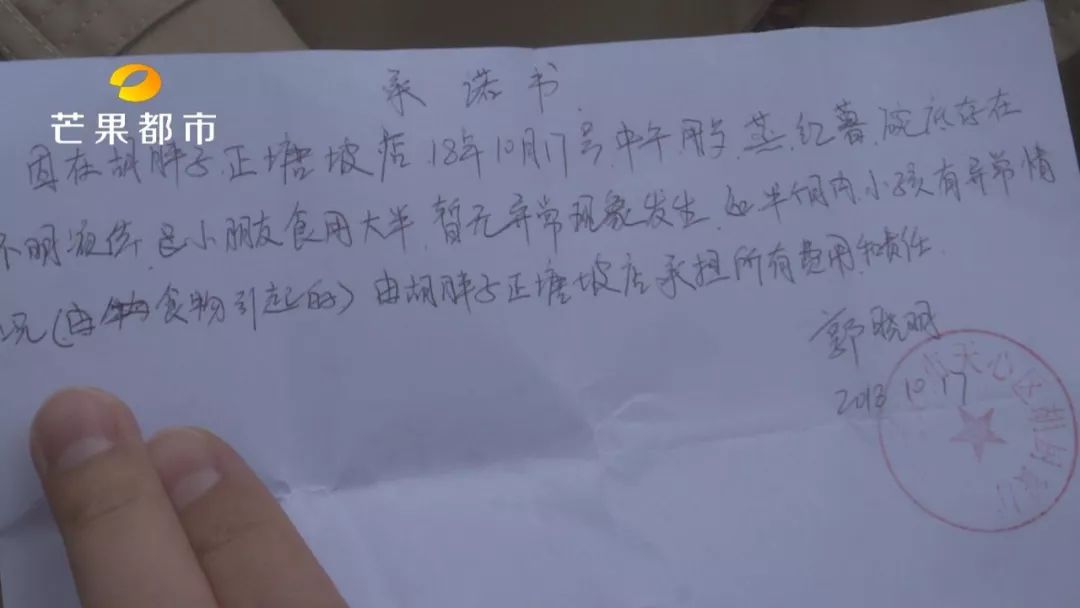 芒果都市
承诺书
因在胡胖子正塘坡店18年10月17号中午用了蒸红薯,碗底存在
不明液体,已小朋友食用大半,暂无异常现象发生,如半个月内小孩有异常情
况(由食物引起的)由胡胖子正塘坡店承担所有费用和责任.
郭晓明
2018.10.17
天心区胡